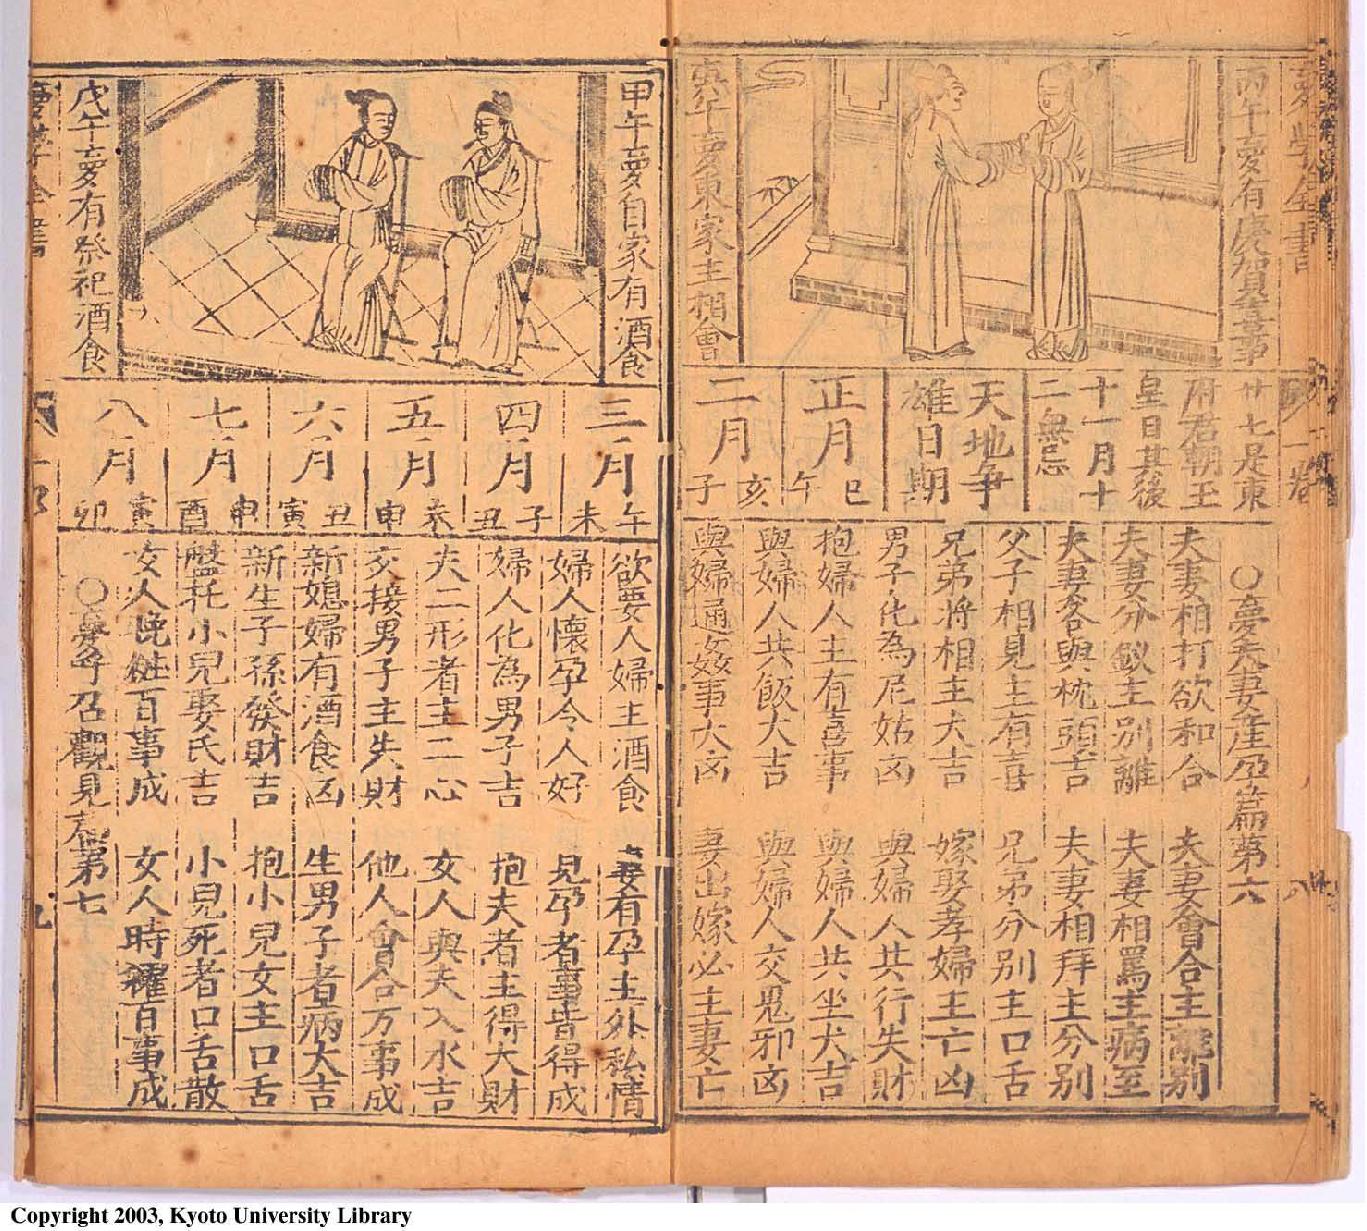 夢學全書
卷一
八
丙午夢有慶賀等事
庚午夢東家主相會
廿七是東
府君朝玉
皇日其後
十一月十
二無忌
天地爭
雄日期
正月 巳午
二月 亥子
〇夢夫妻產孕篇第六
夫妻相打欲和合 夫妻會合主離別
夫妻分釵主別離 夫妻相罵主病至
夫妻客與枕頭吉 夫妻相拜主分別
父子相見主有喜 兄弟分別主口舌
兄弟將相主大吉 嫁娶孝婦主亡凶
男子化為尼姑凶 與婦人共行失財
抱婦人主有喜事 與婦人共坐大吉
與婦人共飯大吉 與婦人交鬼邪凶
與婦通姦事大凶 妻出嫁必主妻亡
甲午夢自家有酒食
戊午夢有祭祀酒食
三月 午未
四月 子丑
五月 未申
六月 丑寅
七月 申酉
八月 寅卯
欲娶人婦主酒食 妻有孕主外私情
婦人懷孕令人好 見孕者事皆得成
婦人化為男子吉 抱夫者主得大財
夫二形者主二心 女人與夫入水吉
交接男子主失財 他人會合万事成
新媳婦有酒食凶 生男子者病大吉
新生子孫發財吉 抱小兒女主口舌
盤托小兒娶氏吉 小兒死者口舌散
女人晚粧百事成 女人時耀百事成
〇夢尋召觀見篇第七
夢學全書
九